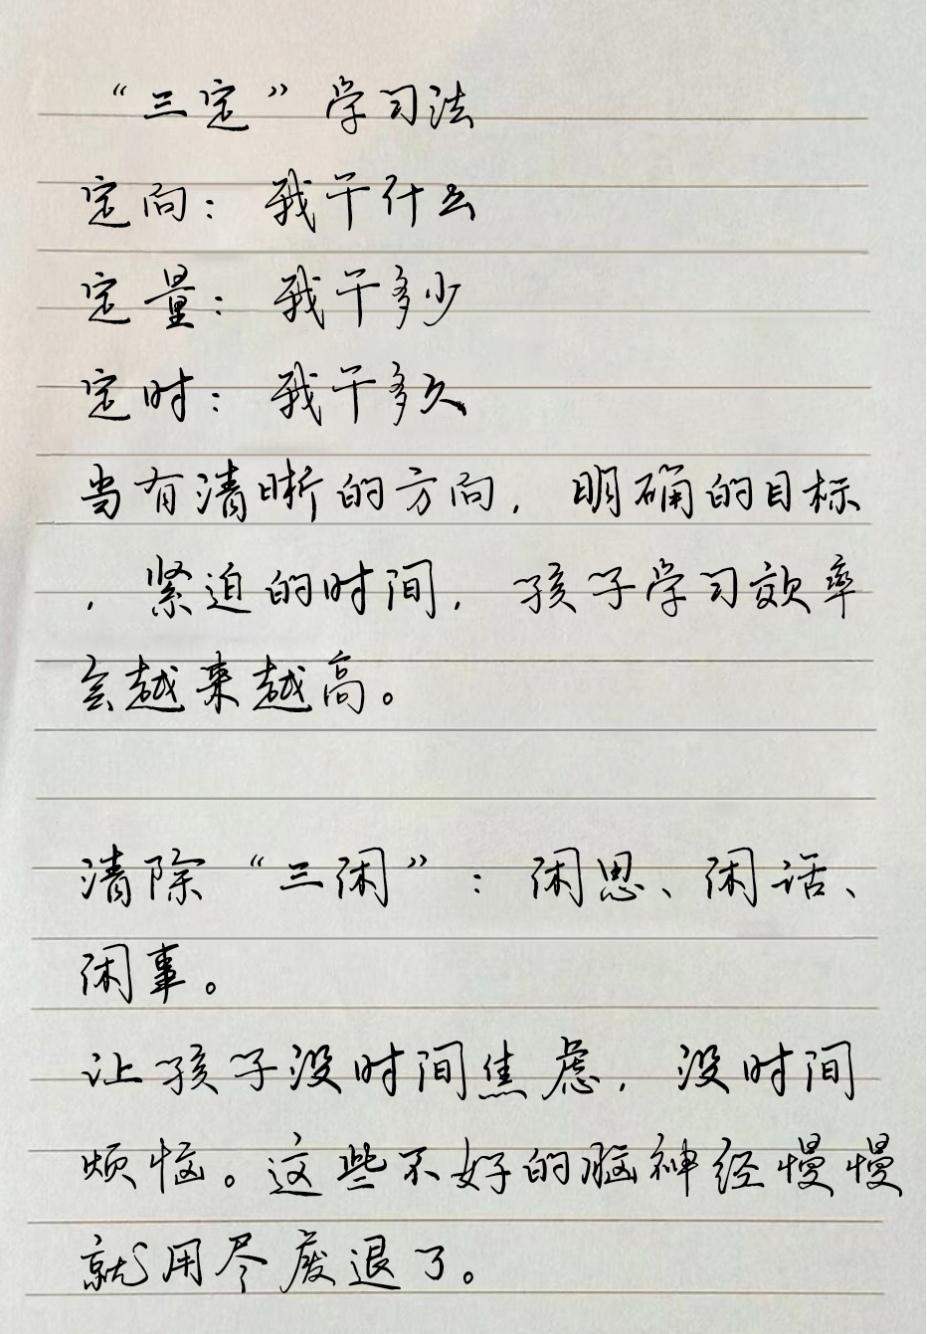 “三定”学习法
定向：我干什么
定量：我干多少
定时：我干多久
当有清晰的方向，明确的目标
，紧迫的时间，孩子学习效率
会越来越高。
清除“三闲”：闲思、闲话、
闲事。
让孩子没时间焦虑，没时间
烦恼。这些不好的脑神经慢慢
就用尽废退了。